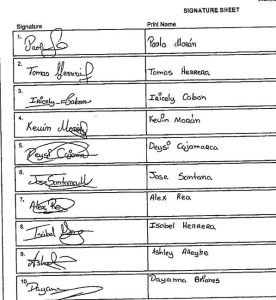 SIGNATURE SHEET
Signature Print Name
1. Paola Morán
2. Tomas Herrera Tomas HERRERA
3. Iricely Cabon Iricely Cabon
4. Kevin Kevin Morán
5. Deysi Cajamarca Deysi Cajamarca
6. Jose Santana Jose Santana
7. Alex Rea Alex Rea
8. Isabel Isabel HERRERA
9. Ashley Allegte
10. Dayanna Dayanna Briones